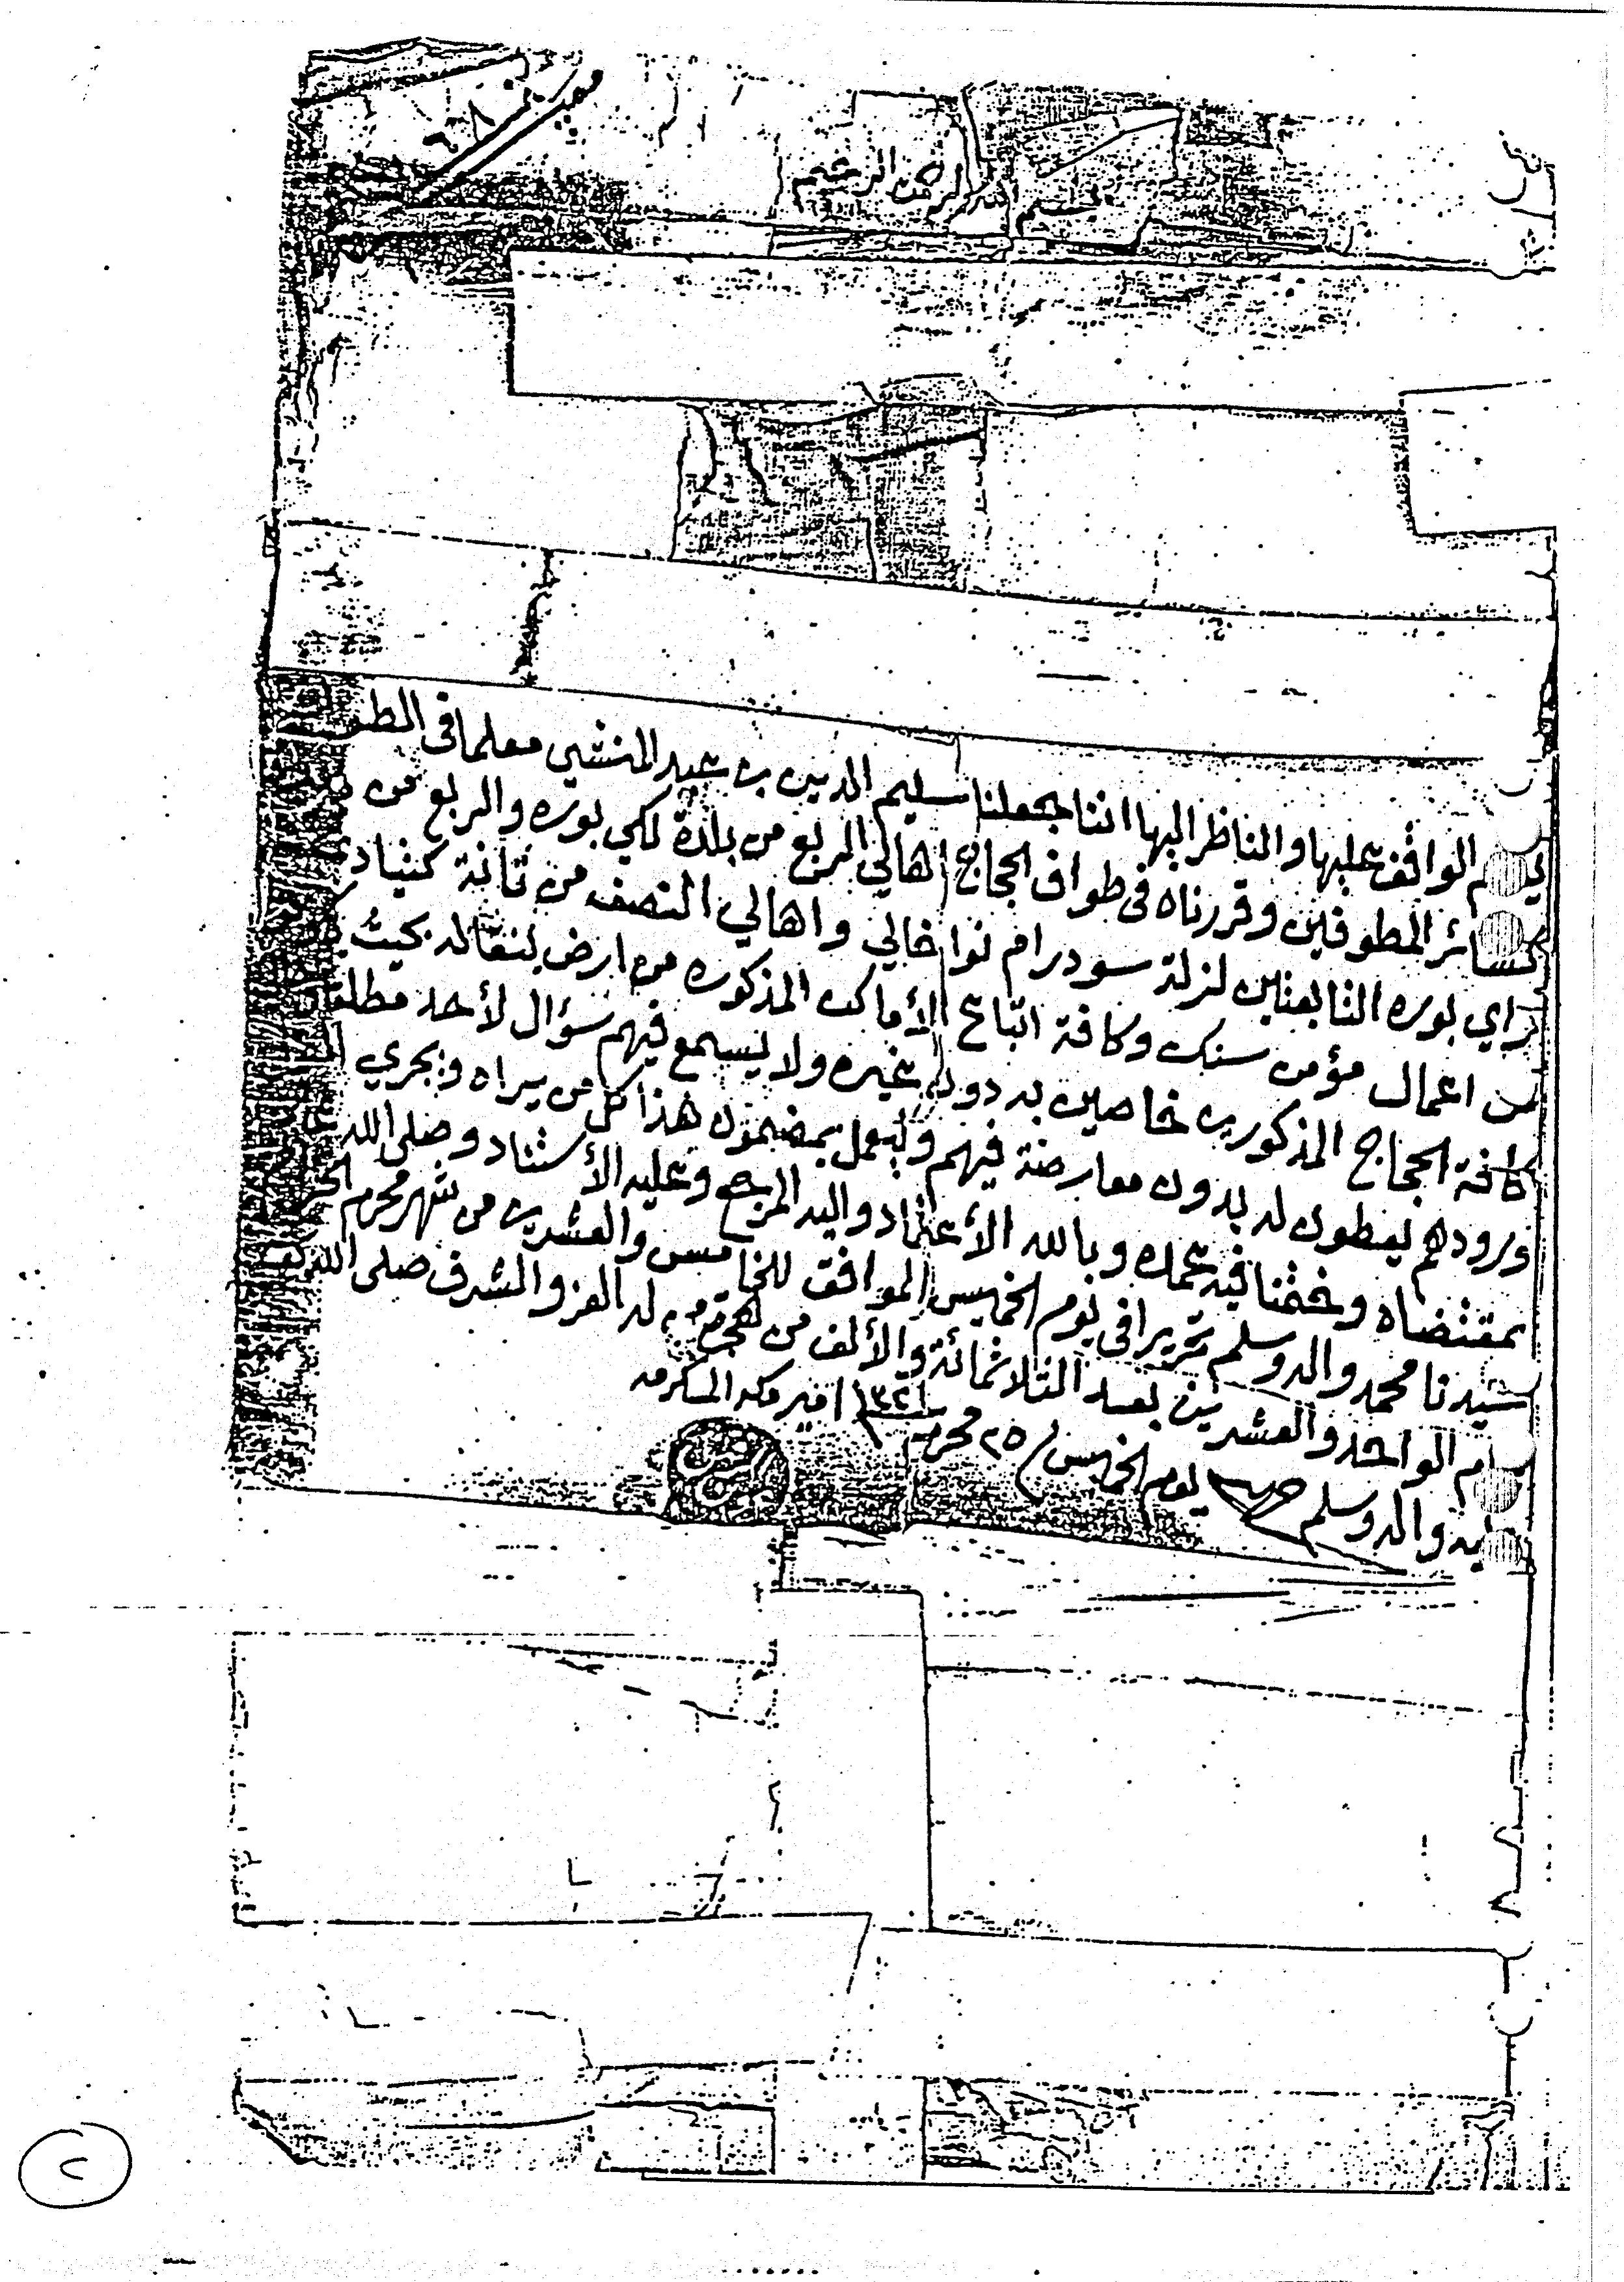 بسم الله الرحمن الرحيم
الواقف عليها والناظر اليها اننا جعلنا سليم الدين بن عبد المنشي معلما في الطو
كسائر المطوفين وقررناه في طواف الحجاج اهالي الربع من بلدة لكي بوره والربع من
راي بوره التابعتين لنزلة سودرام نواخالي واهالي النصف من تانة
من اعمال مؤمن سنك وكافة اتباع الأماكن المذكوره من ارض بنغاله بحيث
كافة الحجاج المذكورين خاصين به دون غيره ولا يسمع فيهم سؤال لأحد مطلقا
ورودهم يعطون له بدون معارضة فيهم وليعمل بمضمون هذا كل من يراه ويجري
بمقتضاه وختمنا فيه عمده وبالله الأعتماد واليه المرجع وعليه الأستناد وصلى الله
سيدنا محمد واله وسلم تحريرا في يوم الخميس الموافق للخامس والعشرين من شهر محرم
الواحد والعشرين بعد الثلاثمائة والألف من هجرة من له العز والشرف صلى الله
واله وسلم يوم الخميس ٢٥ محرم ١٣٢١ امير مكه المكرمه